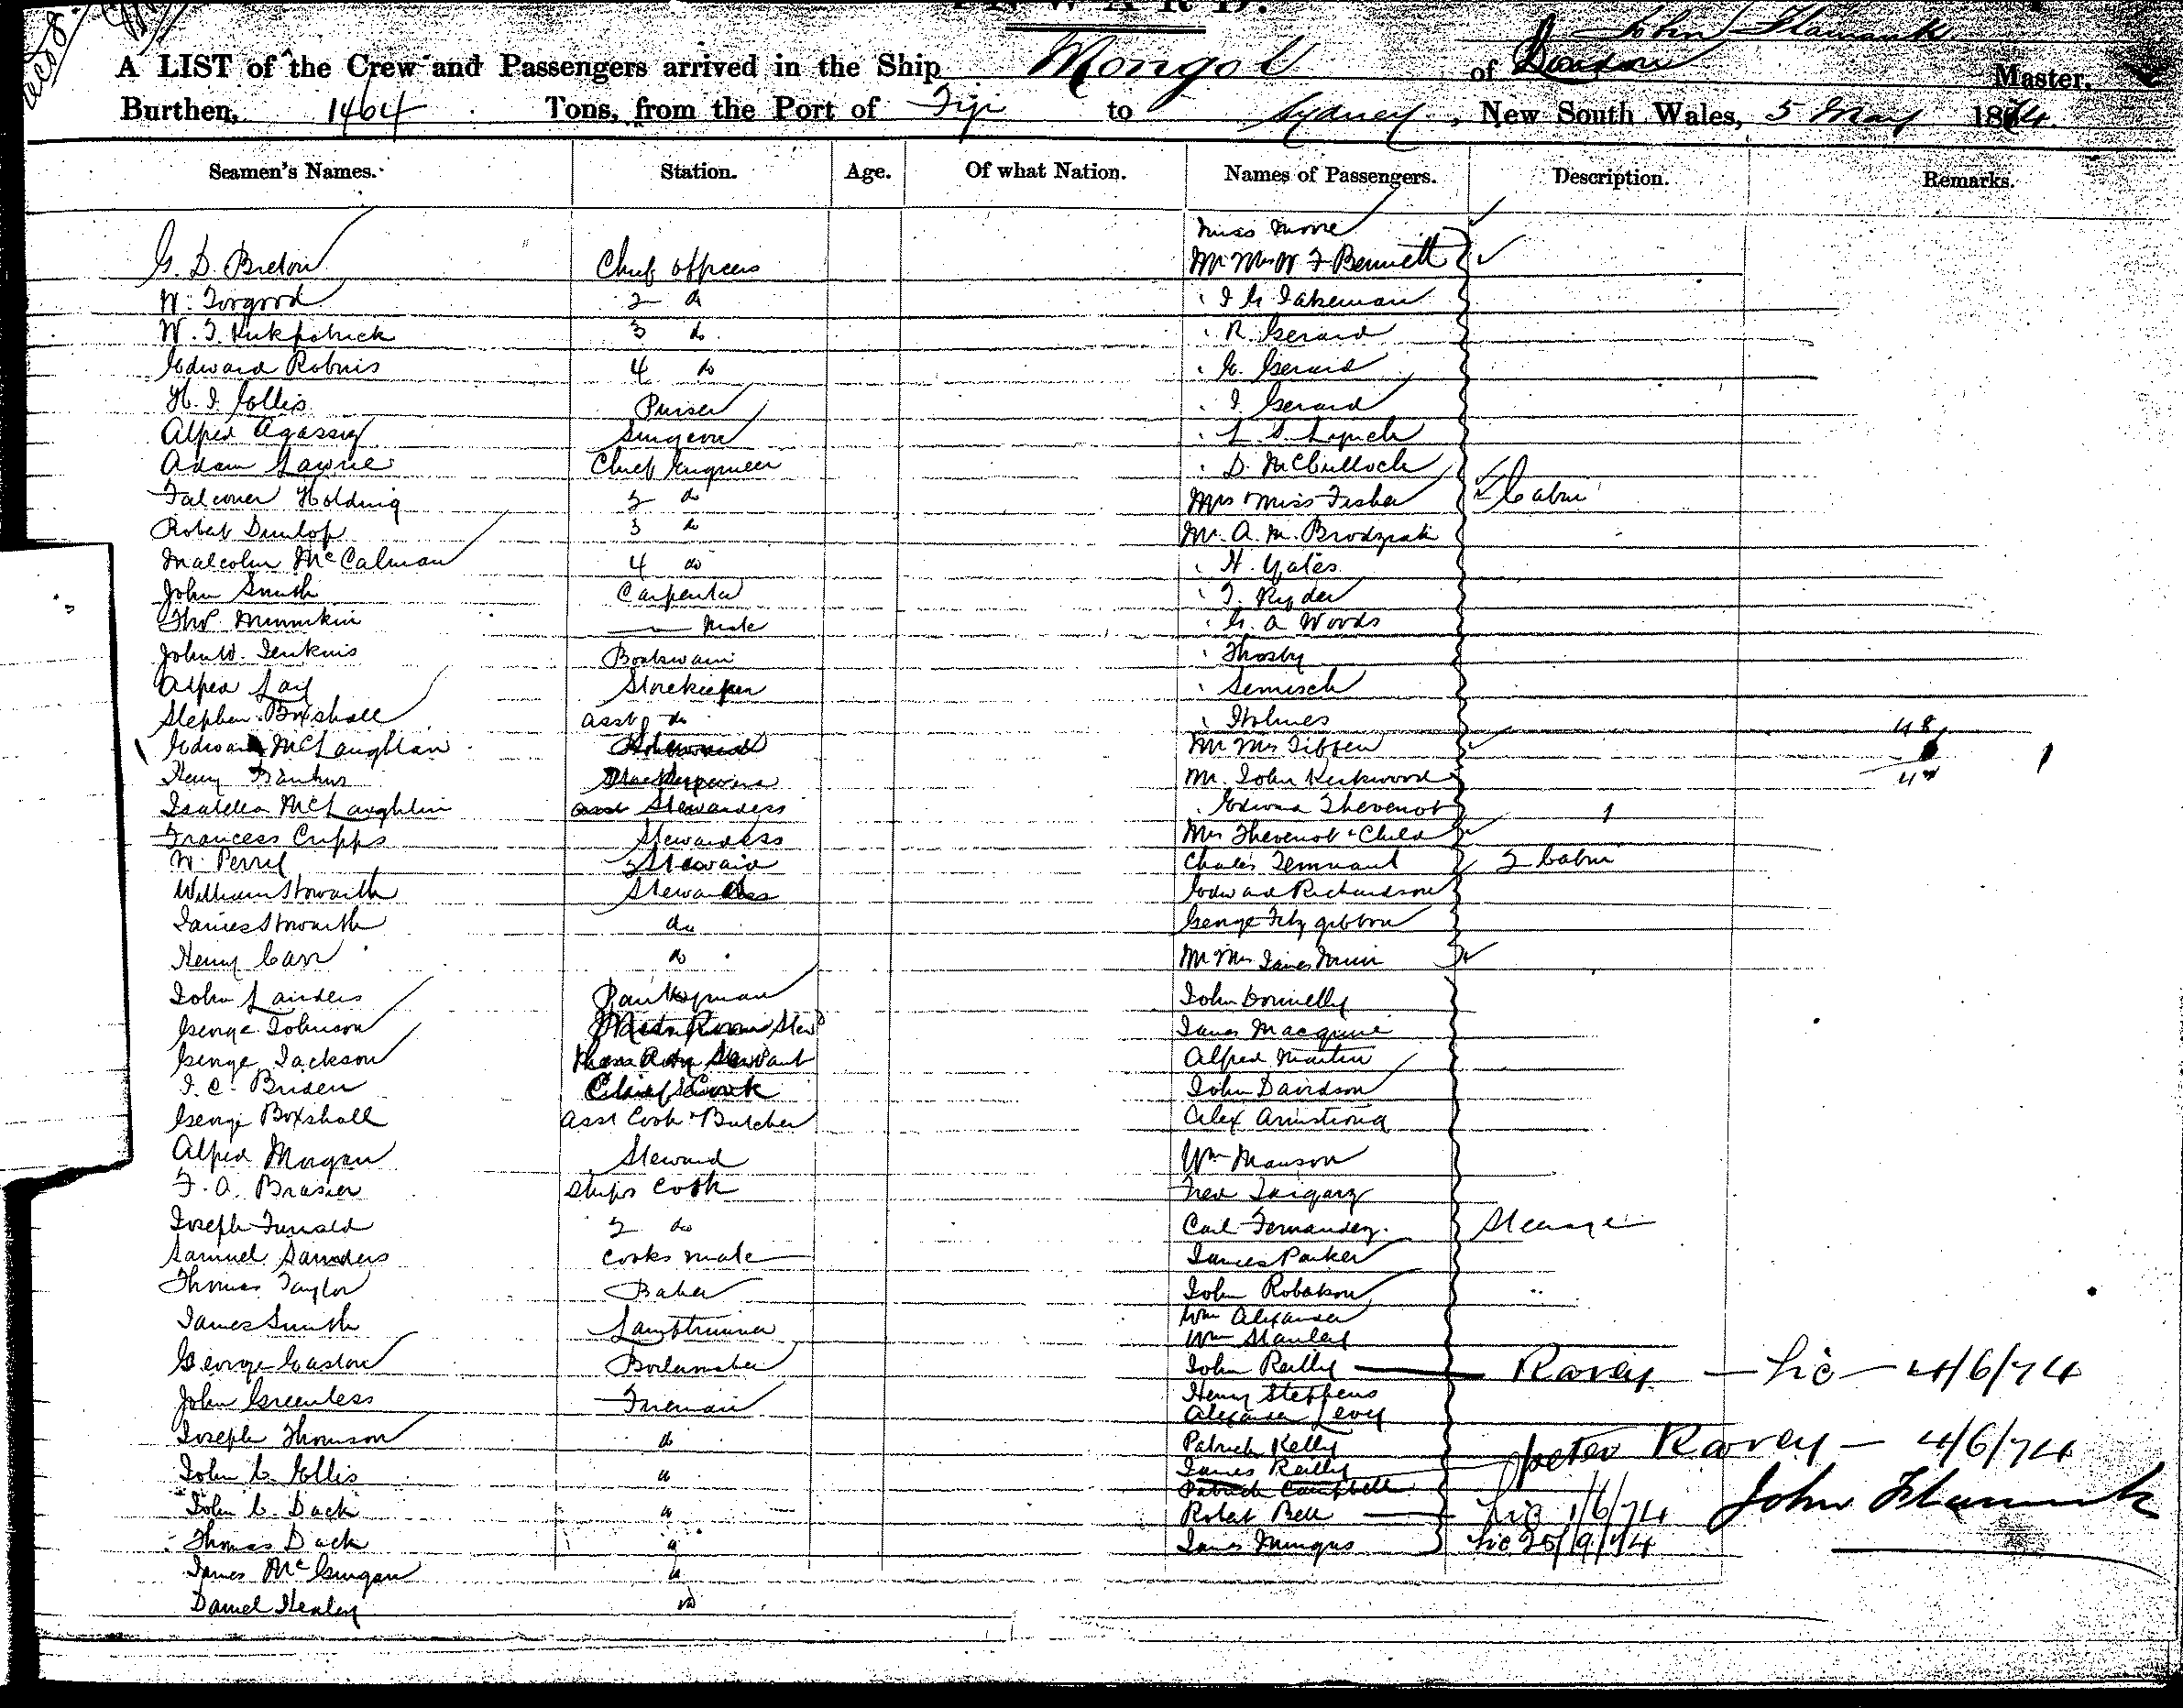 INWARD.
A LIST of the Crew and Passengers arrived in the Ship Mongol of London John Flamank Master,
Burthen, 1464 Tons, from the Port of Fiji to Sydney, New South Wales, 5 May 1874.
Seamen's Names. Station. Age. Of what Nation. Names of Passengers. Description. Remarks.
Miss Moore
G. D. Breton Chief Officer Mr Mrs W F Bennett
W. Torgood 2 do
W. T. Kirkpatrick 3 do R. Gerard
Edward Robins 4 do G. Gerard
H. J. Ellis Purser J Gerard
Alfred Agassiz Surgeon L. S. Lynch
Adam Lawrie Chief Engineer D. McCulloch
Falconer Holding 2 do Mrs & Miss Fisher Cabin
Robert Dunlop 3 do Mr. A. M. Brodziak
Malcolm McCalman 4 do H. Yates
John Smith Carpenter T. Ryder
Thos Minnikin Mate G. A Woods
John W. Jenkins Boatswain Throsby
Alfred Storekeeper Semisch
Stephen Boxshall asst do Holmes 48
Edward McLaughlan Mr Mrs Tibben
Henry Mr. John Kirkwood
Isabella McLaughlin asst Stewardess Edward Thevenot 1
Francess Cripps Stewardess Mrs Thevenot & Child
W. Perry 2 Steward Charles Tennant 2 Cabin
William Howarth Steward Edward Richardson
James Howarth do George Fitzgibbon
Henry Carr do Mr Mrs James Muir
John Landers Pantryman John Donnelly
George Johnson Mess Room Stewd James Macquire
George Jackson Mess Room Servant Alfred Martin
J. C. Briden Chief Cook John Davidson
George Boxshall Asst Cook & Butcher Alex Armstrong
Alfred Morgan Steward Wm Manson
F. A. Brasier Ships Cook Fred
Joseph 2 do Carl Fernandez Steerage
Samuel Saunders Cooks Mate James Parker
Thomas Taylor Baker John Robertson
Wm Alexander
James Smith Lamptrimmer Wm Stanley
George Easton Boilermaker John Reilly — Ravey — Lic — 4/6/74
John Greenless Fireman Henry Steffens
Alexander Levey
Joseph Thomson do Patrick Kelly Peter Ravey — 4/6/74
John C. Ellis do James Reilly
Patrick Campbell
John C. Dack do Robert Bell Lic 1/6/74 John Flamank
Thomas Dack do James Mungus Lic 25/9/74
James McGuigan do
Daniel Healey do